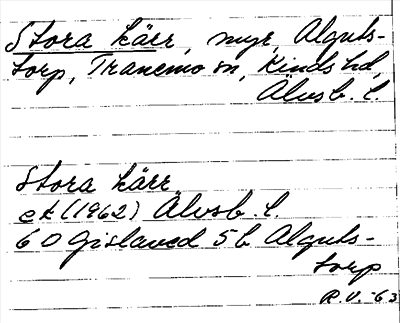 Stora kärr, myr, Alguts-
torp, Tranemo sn, Kinds hd,
Älvsb. l.
Stora kärr
ek (1962) Älvsb. l.
60 Gislaved 5b Alguts-
torp
R.V. -63